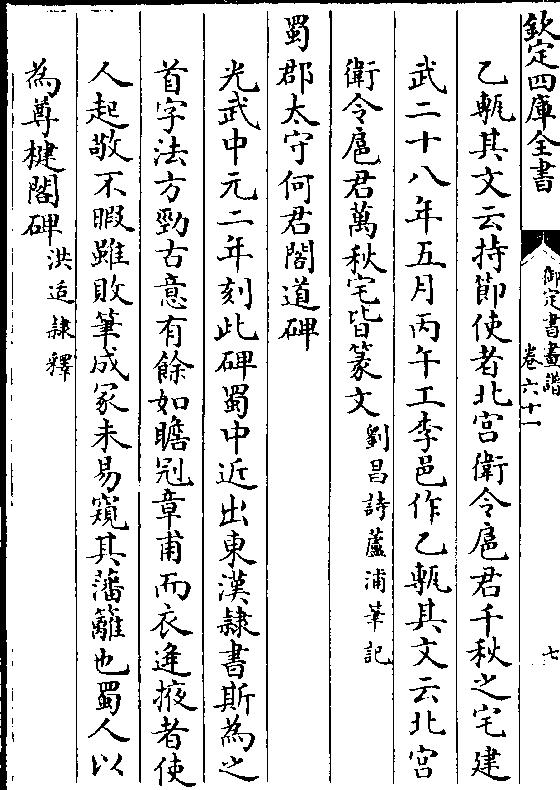 欽定四庫全書
御定書畫譜
卷六十一
七
乙㼾其文云持節使者北宮衛令扈君千秋之宅建
武二十八年五月丙午工李邑作乙㼾其文云北宮
衛令扈君萬秋宅皆篆文劉昌詩蘆浦筆記
蜀郡太守何君閣道碑
光武中元二年刻此碑蜀中近出東漢隸書斯為之
首字法方勁古意有餘如瞻冠章甫而衣逢掖者使
人起敬不暇雖敗筆成冢未易窺其藩籬也蜀人以
為尊楗閣碑洪适隸釋